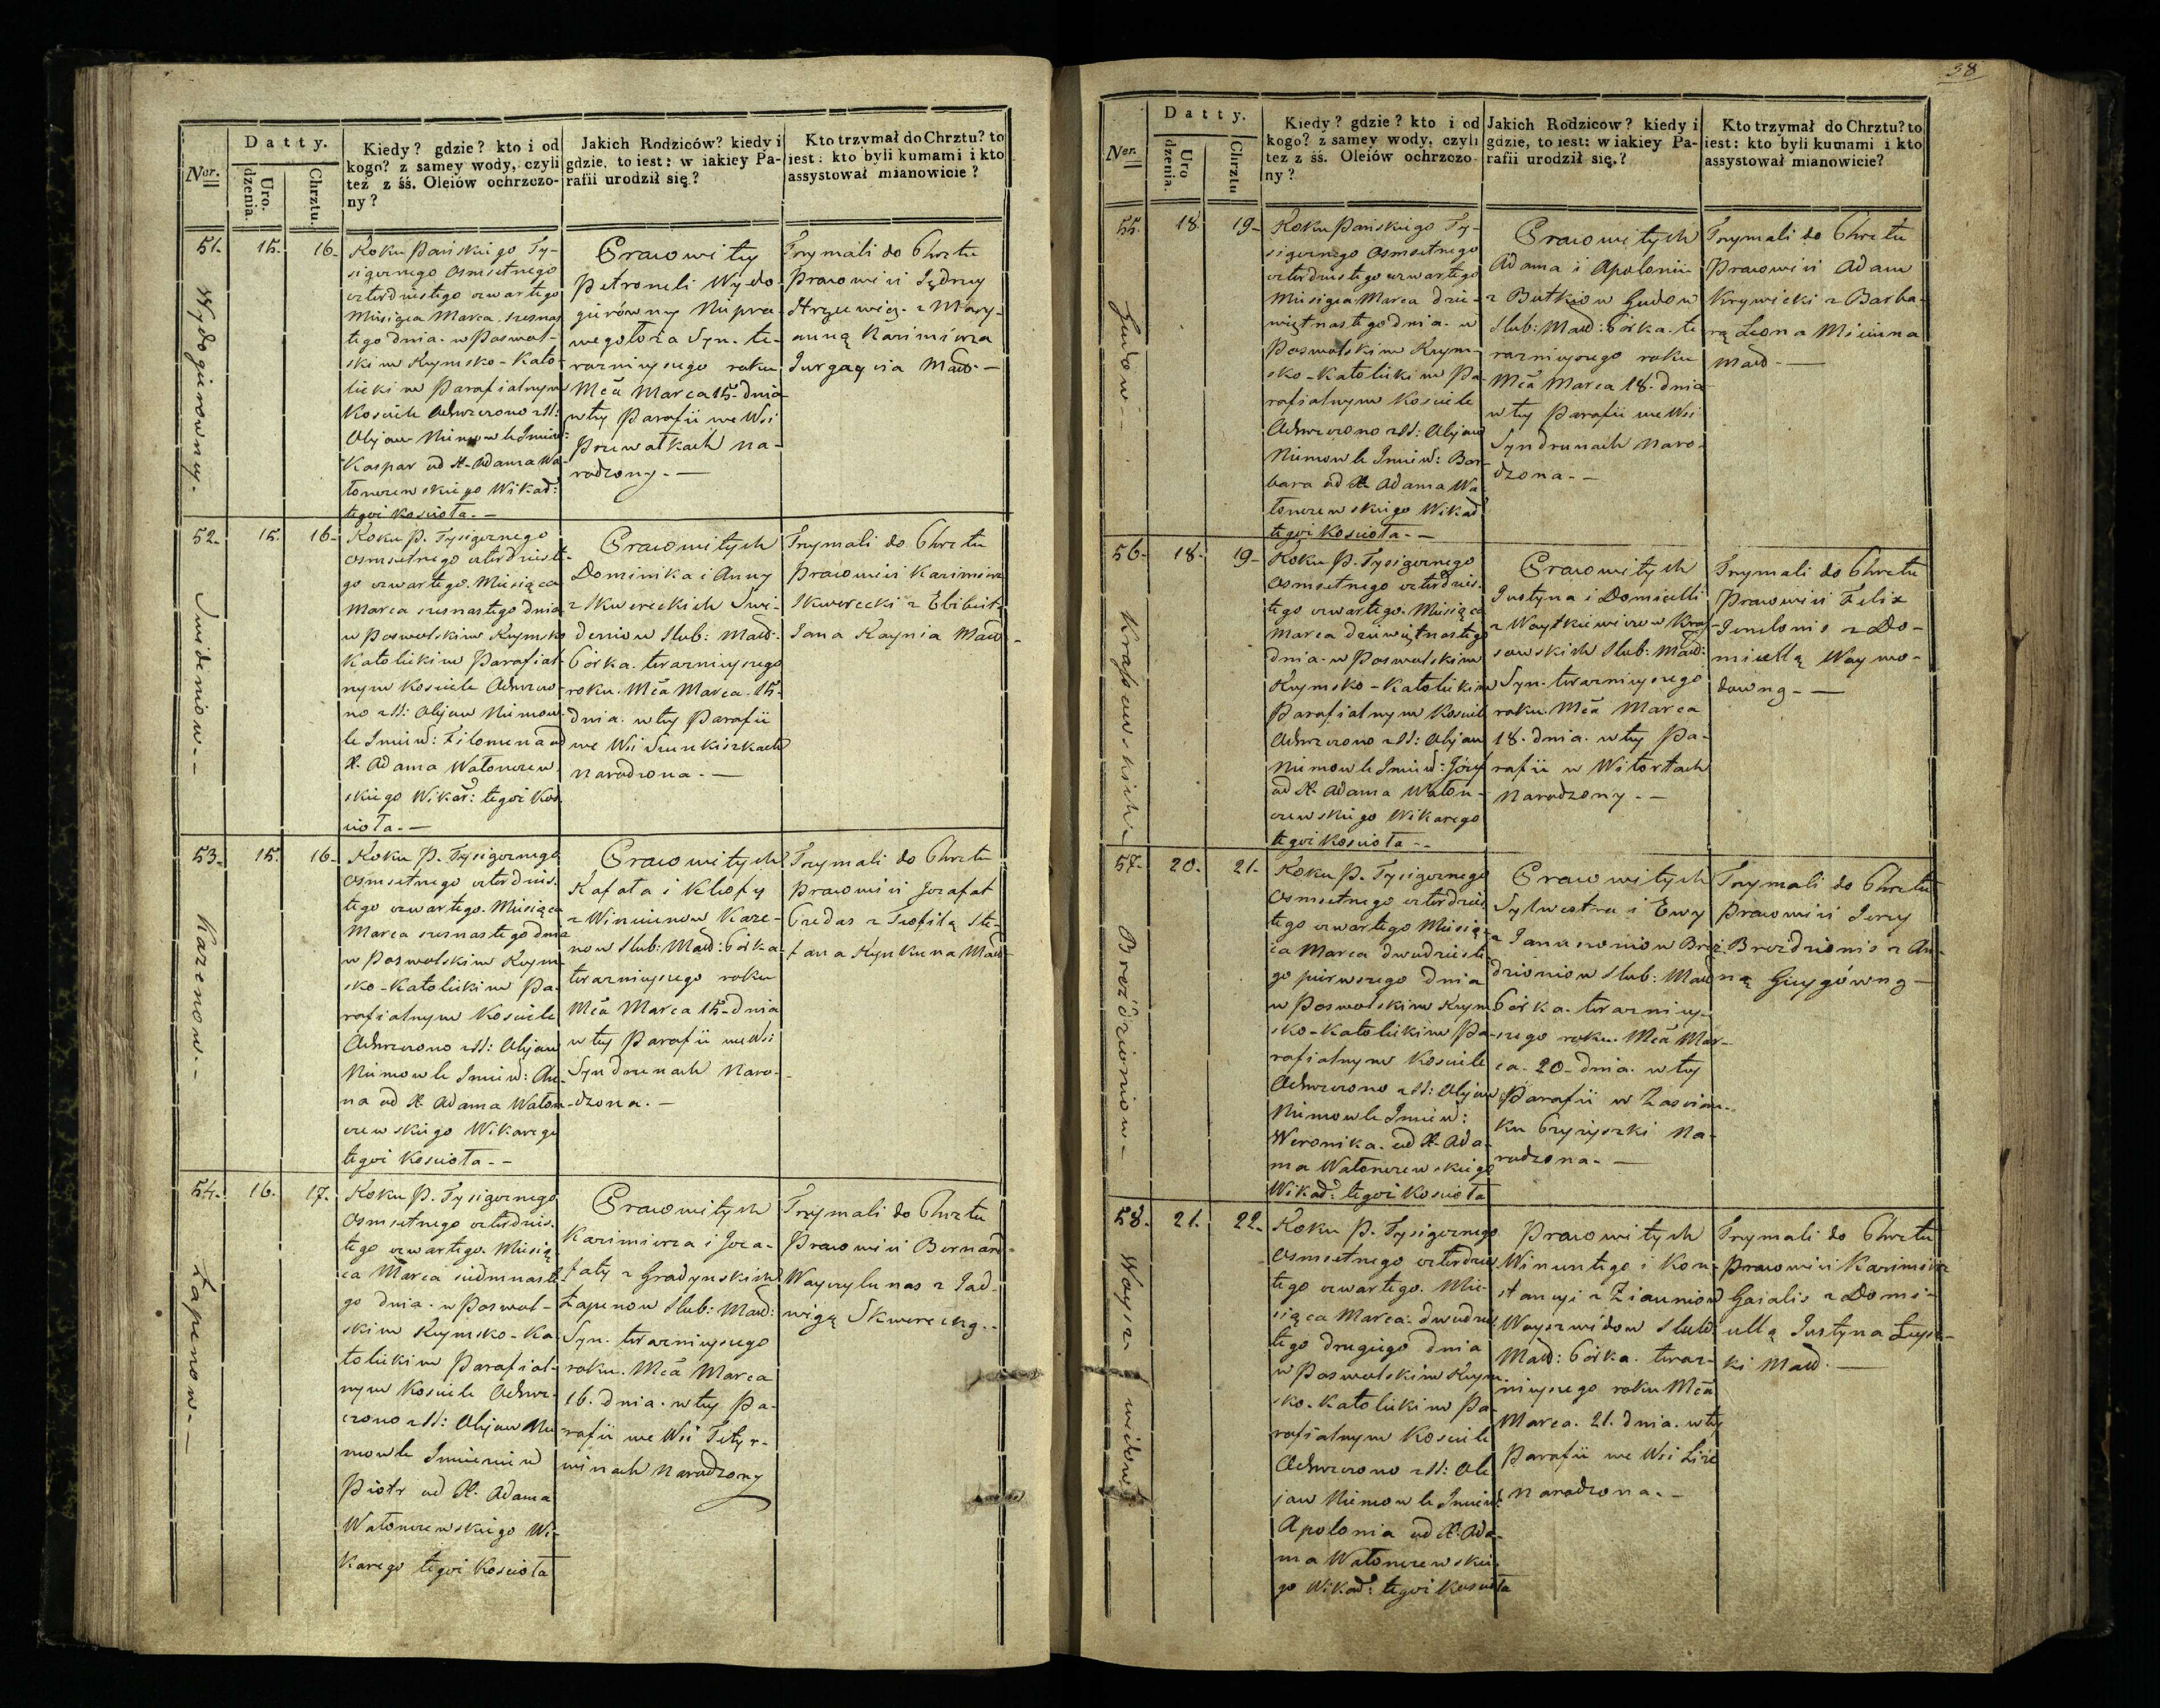 38
Ner.
Datty.
Uro.
dzenia.
Chrztu.
Kiedy? gdzie? kto i od
kogo? z samey wody, czyli
też z śś. Oleiów ochrzczo-
ny?
Jakich Rodziców? kiedy i
gdzie, to iest: w iakiey Pa-
rafii urodził się?
Kto trzymał do Chrztu? to
iest: kto byli kumami i kto
assystował mianowicie?
51.
15.
16.
Wydogierowny.
Roku Pańskiego Ty-
siącznego Osmsetnego
czterdziestego czwartego
Miesiąca Marca szesnas
tego dnia. w Poswol-
skim Rzymsko-Kato-
lickim Parafialnym
Kosciele Ochrzczono z SS:
Olejow Niemowle Imien:
Kaspar od X. Adama Wa-
łonczewskiego Wikar:
tegoż Kościoła. -
Pracowitey
Petroneli Wydo-
gierówny Niepra-
wego łoża Syn. te-
raznieyszego roku
Mca Marca 15. dnia
w tey Parafii we Wsi
Przewałkach na-
rodzony. -
Trzymali do Chrztu
Pracowici Jędrzey
Strzewicz. z Mary-
anną Kazimierza
Jurgaycia Mał- -
52.
15.
16-
Swideniow -
Roku P. Tysiącznego
Osmsetnego czterdzieste-
go czwartego. Miesiąca
Marca szesnastego dnia
w Poswolskim Rzymsko
Katolickim Parafial-
nym Kosciele Ochrzczo-
no z SS: Olejow Niemow-
le Imien: Filomena od
X. Adama Wałonczew-
skiego Wikar: tegoż Koś-
cioła. -
Pracowitych
Dominika i Anny
z Skwereckich Swi-
deniow Slub: Małż.
Córka. teraznieyszego
roku. Mca Marca. 15.
dnia. w tey Parafii
we Wsi Szunkiszkach
Narodzona. -
Trzymali do Chrztu
Pracowici Kazimierz
Skwerecki z Elżbietą
Jana Raynia Małż -
53.
15.
16-
Kazenow. -
Roku P. Tysiącznego
Osmsetnego czterdzies-
tego czwartego. Miesiąca
Marca szesnastego dnia
w Poswolskim Rzym-
sko-Katolickim Pa-
rafialnym Kosciele
Ochrzczono z SS: Olejow
Niemowle Imien: An-
na od X. Adama Wałon-
czewskiego Wikarego
tegoż Kosciola. -
Pracowitych
Rafała i Klofy
z Wincienow Kaze-
now Slub: Małż: Córka
teraznieyszego roku
Mca Marca 15. dnia
w tey Parafii we Wsi
Syndrunach Naro-
dzona. -
Trzymali do Chrztu
Pracowici Jozafat
Gredas z Teofilą Ste-
fana Rynkuna Małż -
54.
16.
17.
Łapenow. -
Roku P. Tysiącznego
Osmsetnego czterdzies-
tego czwartego. Miesią-
ca Marca siedmnaste-
go dnia. w Poswol-
skim Rzymsko-Ka-
tolickim Parafial-
nym Kosciele Ochrz-
czono z SS: Olejow Nie
mowle Imieniem
Piotr od X. Adama
Wałonczewskiego Wi-
karego tegoż Kosciola
Pracowitych
Kazimierza i Joza-
faty z Gradynskich
Łapenow Slub: Małż:
Syn. teraznieyszego
roku. Mca Marca
16. dnia. w tey Pa-
rafii we Wsi Tetyr-
winach Narodzony
Trzymali do Chrztu
Pracowici Bernard
Wayczylunas z Jad-
wigą Skwerecką. -
Ner.
Datty.
Uro
dzenia.
Chrztu
Kiedy? gdzie? kto i od
kogo? z samey wody, czyli
też z śś. Oleiów ochrzczo-
ny?
Jakich Rodziców? kiedy i
gdzie, to iest: w iakiey Pa-
rafii urodził się.?
Kto trzymał do Chrztu? to
iest: kto byli kumami i kto
assystował mianowicie?
55.
18
19-
Gudow -
Roku Pańskiego Ty-
siącznego Osmsetnego
czterdziestego czwartego
Miesiąca Marca dzie-
więtnastego dnia. w
Poswolskim Rzym-
sko-Katolickim Pa-
rafialnym Kosciele
Ochrzczono z SS: Olejow
Niemowle Imien: Bar-
bara od X. Adama Wa-
łonczewskiego Wikar
tegoż Kosciola. -
Pracowitych
Adama i Apolonii
z Butkiow Gudow
Slub: Małż: Córka. te
raznieyszego roku
Mca Marca 18. dnia
w tey Parafii we Wsi
Syndrunach Naro-
dzona. -
Trzymali do Chrztu
Pracowici Adam
Krywicki z Barba-
rą Leona Miciuna
Małż. -
56.
18.
19-
Krassowskich -
Roku P. Tysiącznego
Osmsetnego czterdzies-
tego czwartego. Miesiąca
Marca dziewiętnastego
dnia. w Poswolskim
Rzymsko-Katolickim
Parafialnym Kosciele
Ochrzczono z SS: Olejow
Niemowle Imien: Józef
od X. Adama Wałon-
czewskiego Wikarego
tegoż Kosciola -
Pracowitych
Justyna i Domicelli
z Waytkiewiczow Kras-
sowskich Slub: Małż:
Syn. teraznieyszego
roku. Mca Marca
18. dnia. w tey Pa-
rafii w Witortach
Narodzony. -
Trzymali do Chrztu
Pracowici Felix
Jendonis z Do-
micellą Waymo-
downą. -
57.
20.
21.
Brozdzioniow -
Roku P. Tysiącznego
Osmsetnego czterdzies
tego czwartego Miesią-
ca Marca dwudzieste
go pierwszego dnia
w Poswolskim Rzym
sko-Katolickim Pa-
rafialnym Kosciele
Ochrzczono z SS: Olejow
Niemowle Imien:
Weronika. od X. Ada-
ma Wałonczewskiego
Wikar: tegoż Kosciola
Pracowitych
Sylwestra i Ewy
z Januszoniow Broż-
dzioniow Slub: Małż
Córka. terazniey-
szego roku. Mca Mar-
ca. 20. dnia. w tey
Parafii w Zascian-
ku Gryzyszki Na-
rodzona. -
Trzymali do Chrztu
Pracowici Jerzy
Brozdzionis z An-
ną Guygówną -
58.
21.
22.
Wayszwidow
Roku P. Tysiącznego
Osmsetnego czterdzies
tego czwartego. Mie-
siąca Marca. dwudzies
tego drugiego dnia
w Poswolskim Rzym-
sko-Katolickim Pa-
rafialnym Kosciele
Ochrzczono z SS: Ole
jow Niemowle Imien:
Apolonia od X. Ada-
ma Wałonczewskie-
go Wikar: tegoż Kosciola
Pracowitych
Wincentego i Kon-
stancyi z Ziauniow
Wayszwidow Slub:
Małż: Córka. teraz-
nieyszego roku Mca
Marca. 21. dnia. w tey
Parafii we Wsi Liże
Narodzona. -
Trzymali do Chrztu
Pracowici Kazimierz
Gaialis z Domi-
cellą Justyna Łups-
ki Małż. -